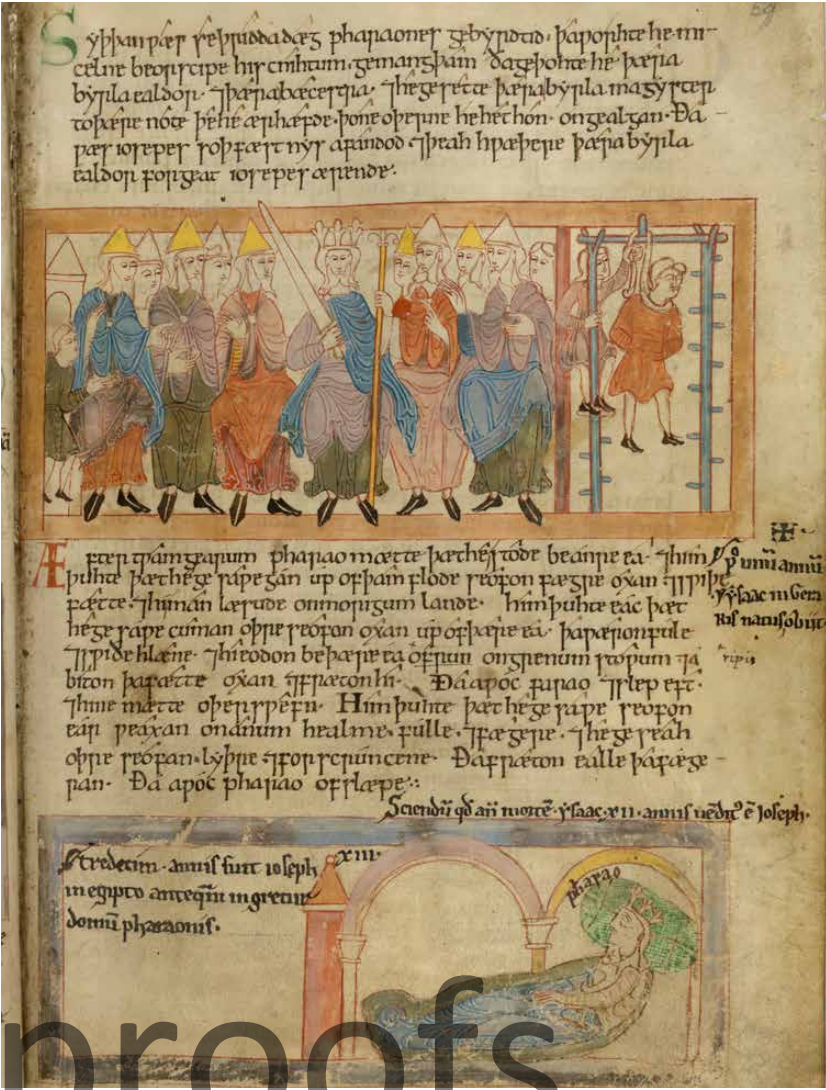 59
Syþþan ƿæs se þridda dæg pharaones gebyrdtid. þa ƿorhte he mi-
celne beorscipe his cnihtum. gemang þam ða geþohte he þæra
byrla ealdor. ⁊ þæra bæcestra. ⁊ he gesette þæra byrla magyster
to þære note þe he ær hæfde. þone oþerne he het hon. on gealgan. Ða
ƿæs iosepes soþfæstnys afandod ⁊ þeah hƿæþere þæra byrla
ealdor forgeat iosepes ærende.
Æfter tƿam gearum pharao mætte þæt he stode be anre ea. ⁊ him
þuhte þæt he gesaƿe gan up of þam flode seofon fægre oxan ⁊ sƿiþe
fætte. ⁊ hi man læsƿode on morigum lande. him þuhte eac þæt
he gesaƿe cuman oþre seofon oxan up of þære ea. þa ƿæron fule
⁊ sƿiðe hlæne. ⁊ hi eodon be þære ea ofrum on grenum stoƿum ⁊ a
biton þa fætte oxan ⁊ fræton hi. Ða aƿoc farao ⁊ slep eft.
⁊ hine mætte oþer sƿefn. Him þuhte þæt he gesaƿe seofon
ear ƿeaxan on anum healme. fulle. ⁊ fægere. ⁊ he geseah
oþre seofan. lyþre ⁊ forscruncene. Ða fræton ealle þa fæge-
ran. Ða aƿoc pharao of slæpe.
unū annū
ysaac in Gera
ris natus obiit
ripis
Sciendū qd añ mortē. ysaac. xii. annis uēdit' ē Ioseph.
tredecim. annis fuit ioseph xiii.
in egipto anteq̄m ingretur
domū pharaonis.
pharao
proofs